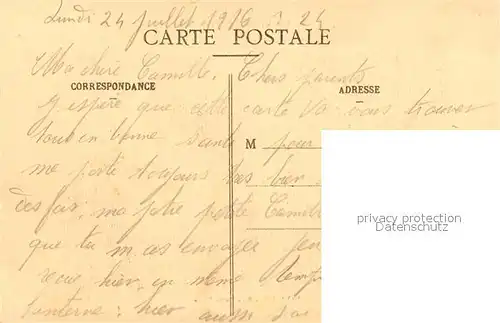 Lundi 24 juillet 1916
CARTE POSTALE
Ma chère Camille, Chers parents
CORRESPONDANCE
ADRESSE
J'espère que cette carte va vous trouver
tout en bonne santé M pour
me porte toujours très bien
des fois, ma petite Camille
que tu m'as envoyée
reçu hier, en même temps
lanterne: hier aussi j'ai
privacy protection
Datenschutz